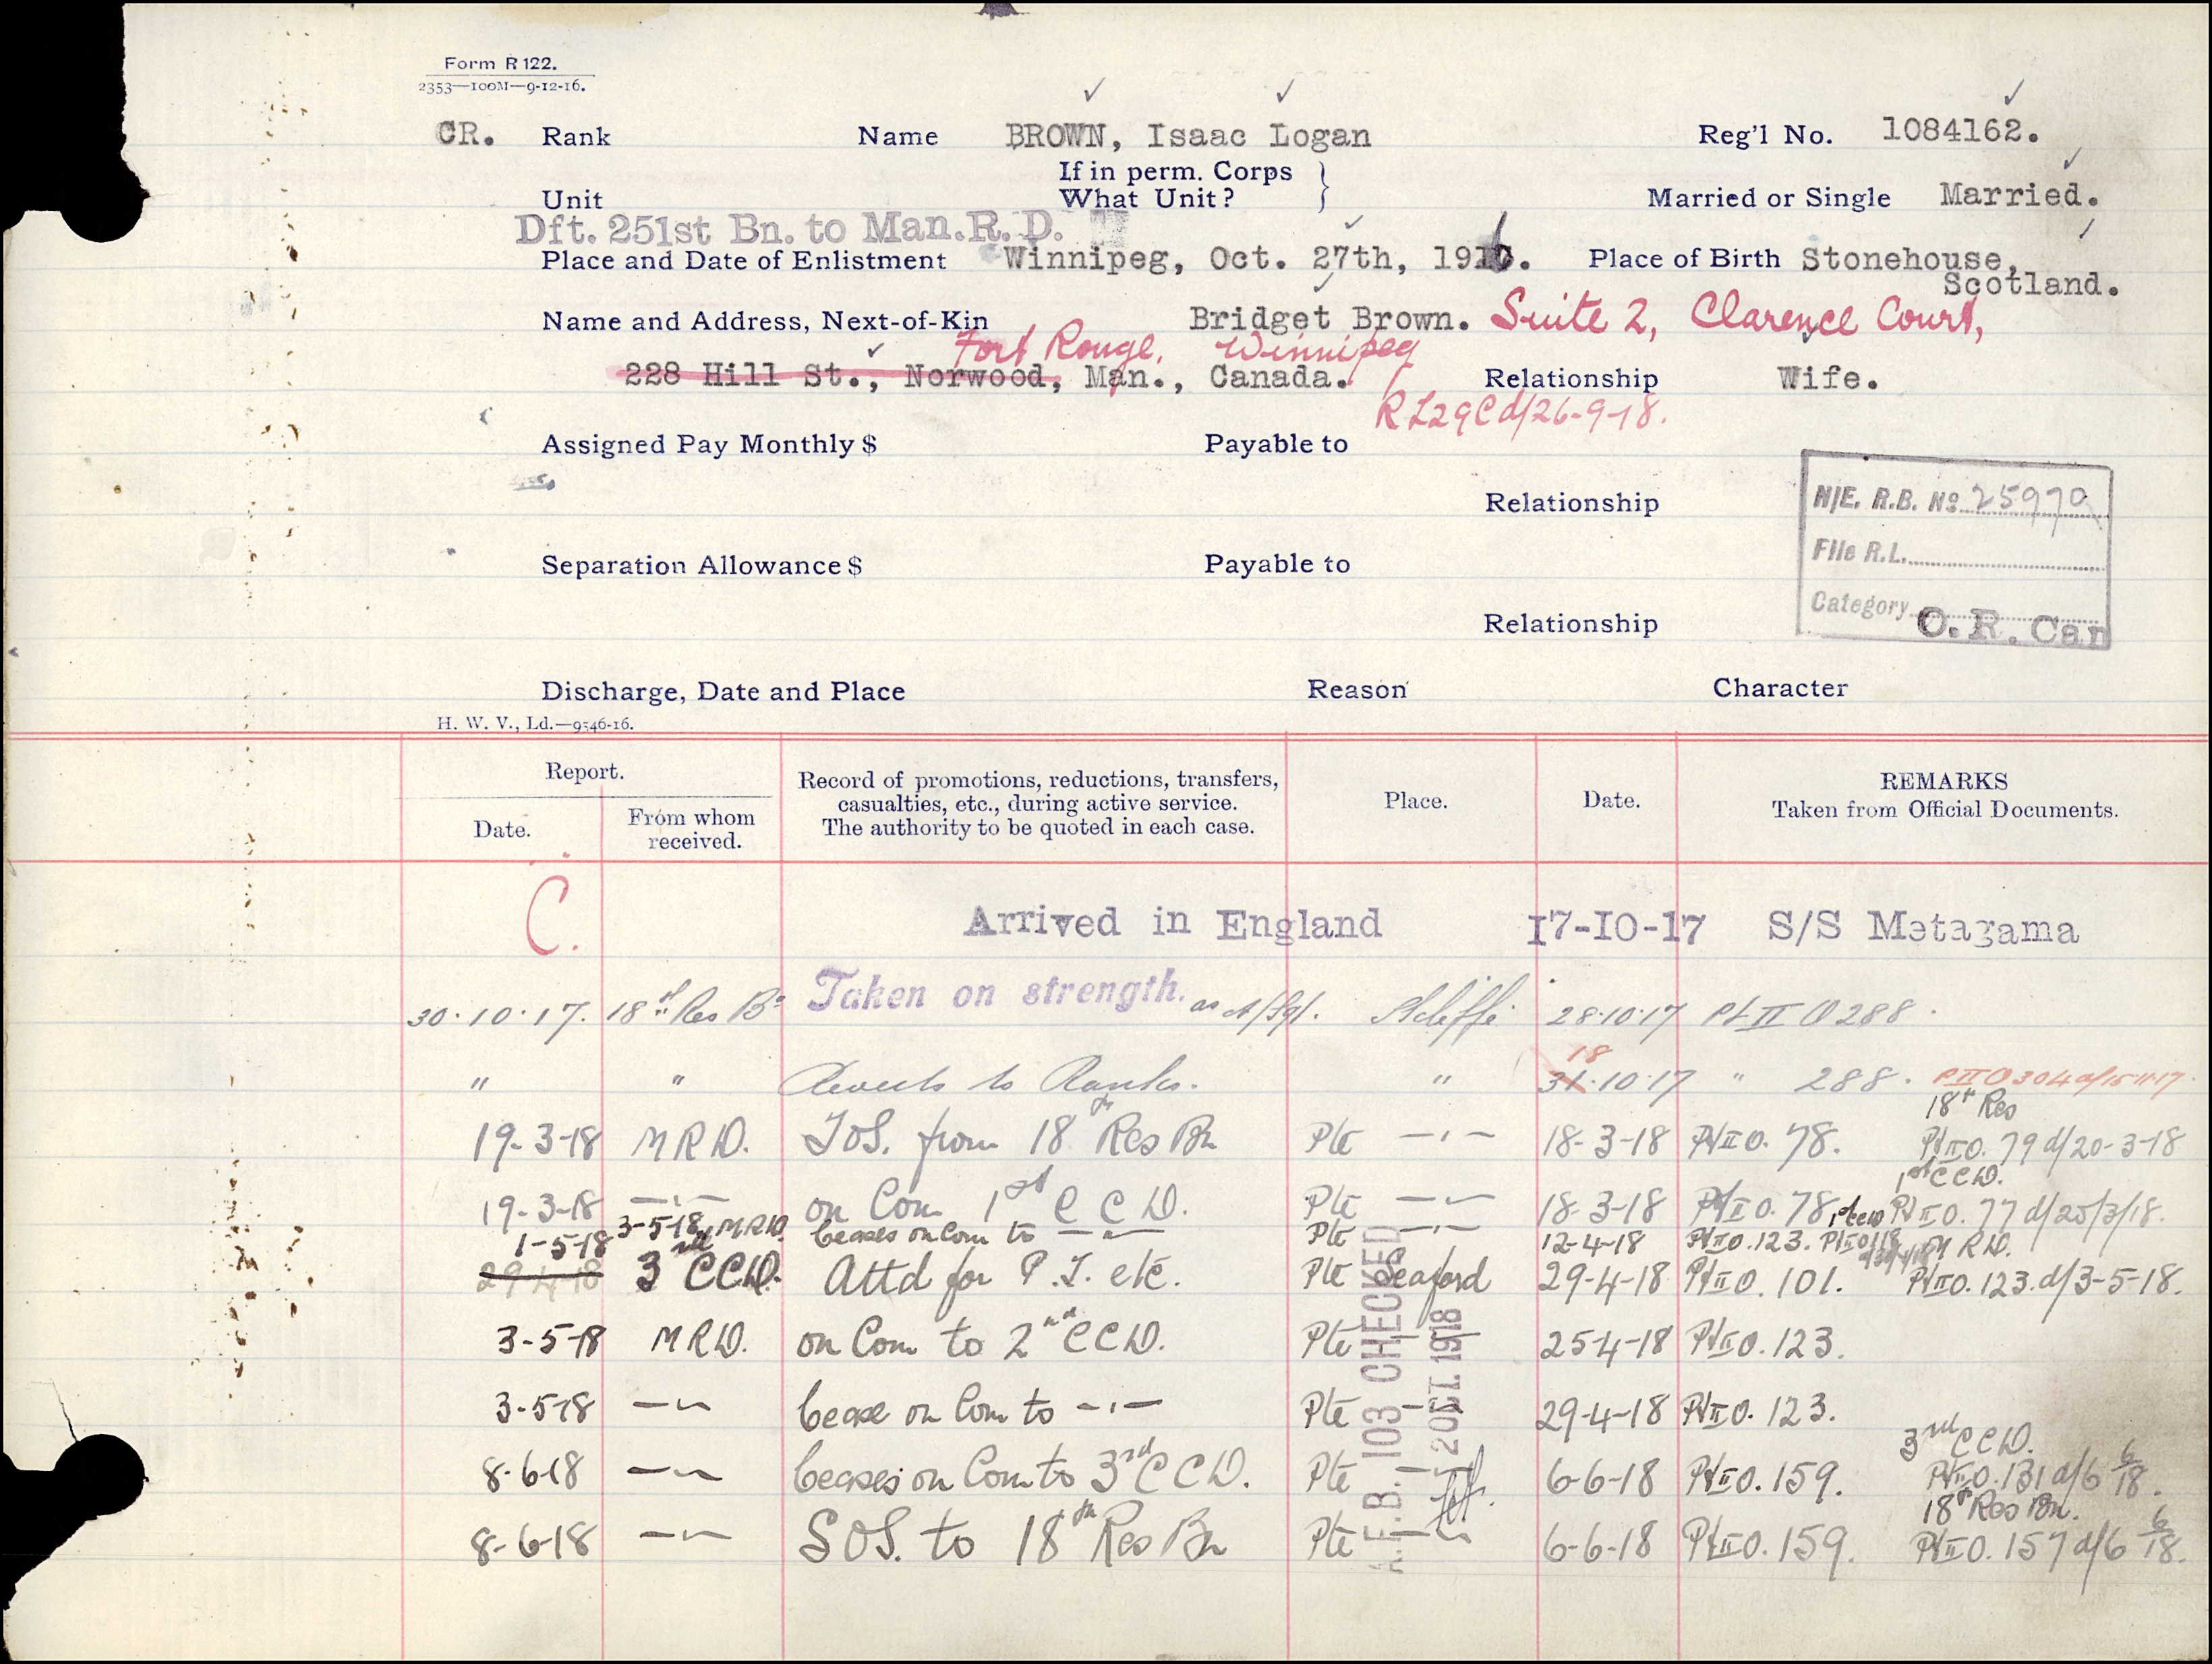 Form R 122.
2353—100M—9-12-16.
CR. Rank Name BROWN, Isaac Logan Reg'l No. 1084162.
If in perm. Corps
Unit What Unit? } Married or Single Married.
Dft. 251st Bn. to Man.R.D.
Place and Date of Enlistment Winnipeg, Oct. 27th, 1916. Place of Birth Stonehouse,
Scotland.
Name and Address, Next-of-Kin Bridget Brown. Suite 2, Clarence Court,
Fort Rouge, Winnipeg
228 Hill St., Norwood, Man., Canada. Relationship Wife.
RL29C d/26-9-18.
Assigned Pay Monthly $ Payable to
N/E. R.B. No 25970
Relationship
File R.L.
Separation Allowance $ Payable to
Category O.R. Can
Relationship
Discharge, Date and Place Reason Character
H. W. V., Ld.—9546-16.
Report.
Date.
From whom received.
Record of promotions, reductions, transfers,
casualties, etc., during active service.
The authority to be quoted in each case.
Place.
Date.
REMARKS
Taken from Official Documents.
C. Arrived in England 17-10-17 S/S Metagama
30·10·17. 18th Res Bn Taken on strength. as A/Sgt. 28·10·17 Pt II O 288.
" " Reverts to Ranks. " 18 31·10·17 " 288. PII O 304 d/15·11·17
18th Res
19-3-18 MRD. TOS. from 18th Res Bn Pte —"— 18-3-18 Pt II O. 78. Pt II O. 79 d/20-3-18
1st CCD.
19-3-18 —"— on Com 1st CCD. Pte —"— 18-3-18 Pt II O. 78, Pt II O. 77 d/25/3/18.
3-5-18 MRD. Ceases on Com to —"— Pte —"— 12-4-18 Pt II O. 123. MRD.
1-5-18
29-4-18 3rd CCD. Attd for P.T. etc. Pte Seaford 29-4-18 Pt II O. 101. Pt II O. 123. d/3-5-18.
3-5-18 MRD. on Com to 2nd CCD. Pte 25-4-18 Pt II O. 123.
3-5-18 —"— Cease on Com to —"— Pte 29-4-18 Pt II O. 123.
3rd CCD.
8-6-18 —"— Ceases on Com to 3rd CCD. Pte 6-6-18 Pt II O. 159. Pt II O. 131 d/6 6/18.
18th Res Bn.
8-6-18 —"— SOS. to 18th Res Bn Pte 6-6-18 Pt II O. 159. Pt II O. 157 d/6 6/18.
A.F.B. 103 CHECKED
OCT. 1918